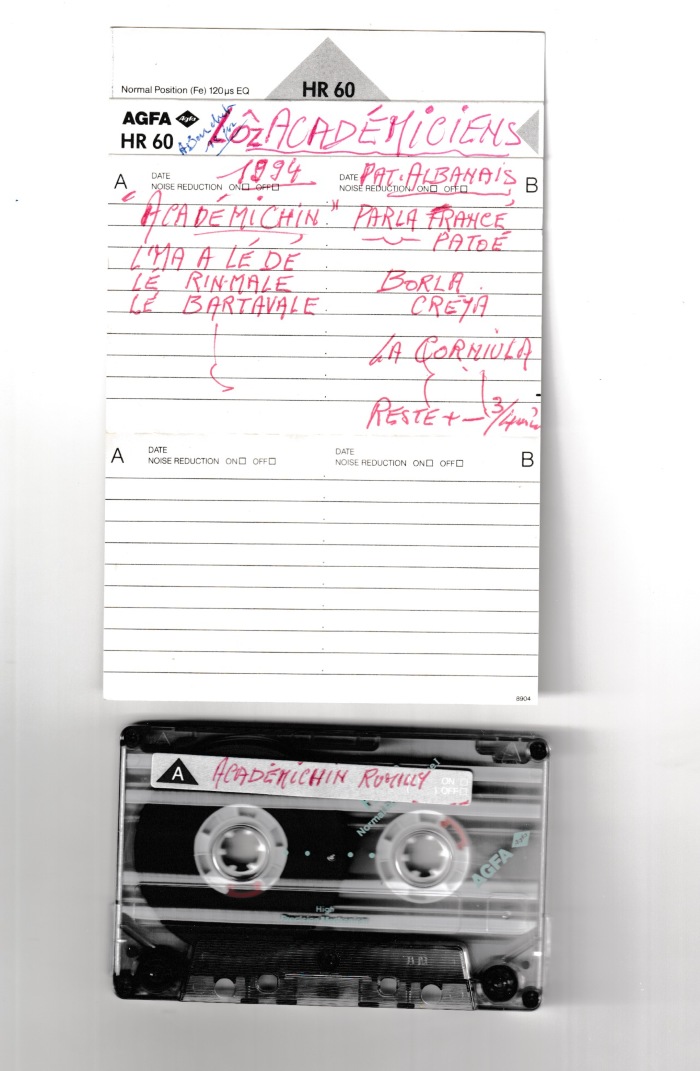 Normal Position (Fe) 120µs EQ
HR 60
AGFA Agfa
HR 60
Lôz ACADÉMICIENS
A
DATE 1994
NOISE REDUCTION ON OFF
"ACADÉMICHIN"
L'MA A LÉ DÉ
LÉ RIN-MALE
LÉ BARTAVALE
DATE PAT. ALBANAIS
NOISE REDUCTION ON OFF
B
PARLA FRANCÉ
PATOÉ
BORLA
CREYA
LA CORNIULA
RESTE + — 3/4
A
DATE
NOISE REDUCTION ON OFF
DATE
NOISE REDUCTION ON OFF
B
8904
A
ACADÉMICHIN RUMILLY
ON
OFF
AGFA
High